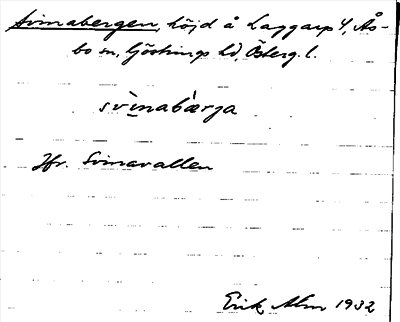 Svinabergen, höjd å Laggarp 4, Ås-
bo sn, Göstrings hd, Österg. l.
svìnabæ̀rja
Jfr. Svinavallen
Erik Alm 1932